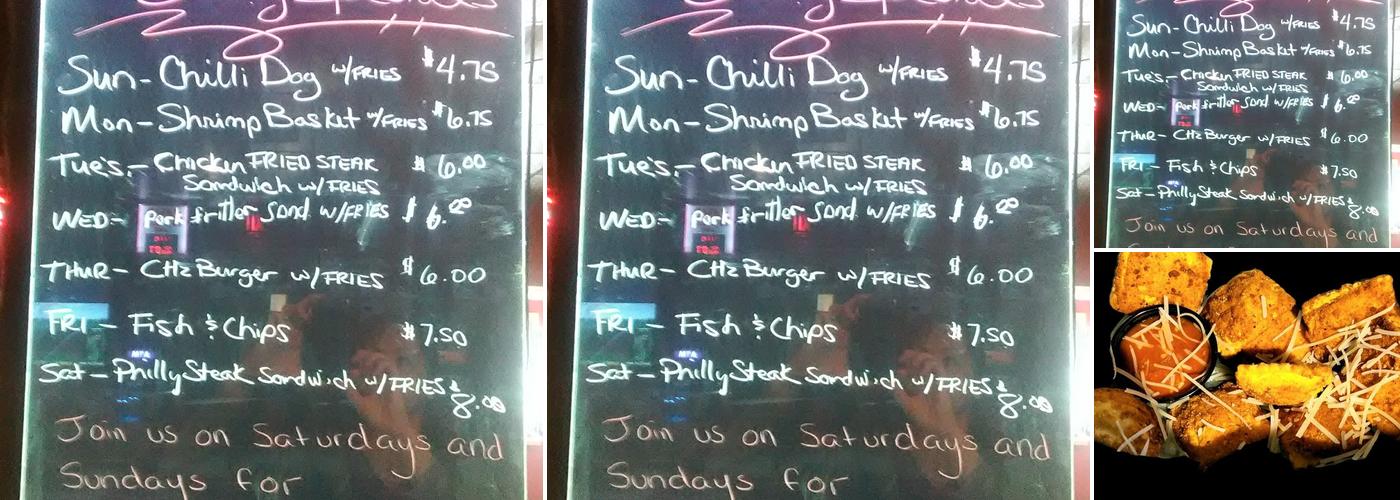 Sun - Chilli Dog w/FRIES $4.75
Mon - Shrimp Basket w/FRIES $6.75
Tue's. - Chickin FRIED STEAK $6.00
Sandwich w/FRIES
WED - Pork fritter Sand w/FRIES $6.00
THUR - CHz Burger w/FRIES $6.00
FRI - Fish & Chips $7.50
Sat - Philly Steak Sandwich w/FRIES $8.00
Join us on Saturdays and
Sundays for
Sun - Chilli Dog w/FRIES $4.75
Mon - Shrimp Basket w/FRIES $6.75
Tue's. - Chickin FRIED STEAK $6.00
Sandwich w/FRIES
WED - Pork fritter Sand w/FRIES $6.00
THUR - CHz Burger w/FRIES $6.00
FRI - Fish & Chips $7.50
Sat - Philly Steak Sandwich w/FRIES $8.00
Join us on Saturdays and
Sundays for
Sun - Chilli Dog w/FRIES $4.75
Mon - Shrimp Basket w/FRIES $6.75
Tue's. - Chickin FRIED STEAK $6.00
Sandwich w/FRIES
WED - Pork fritter Sand w/FRIES $6.00
THUR - CHz Burger w/FRIES $6.00
FRI - Fish & Chips $7.50
Sat - Philly Steak Sandwich w/FRIES $8.00
Join us on Saturdays and